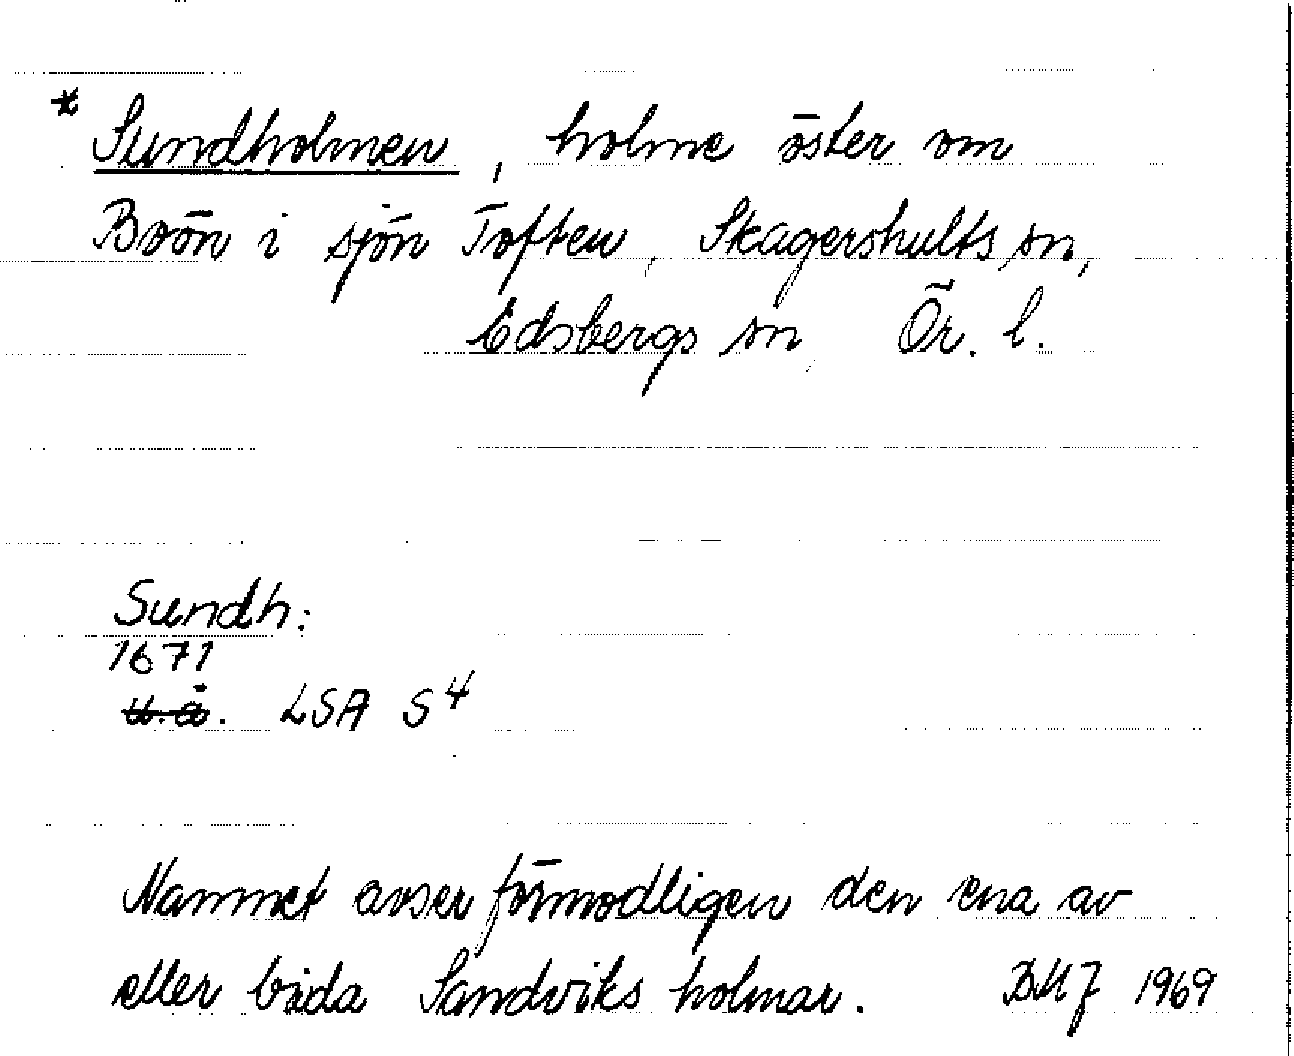 * Sundholmen, holme öster om
Boön i sjön Toften, Skagershults sn,
Edsbergs sn, Ör. l.
Sundh:
1671
u.å. LSA S4
Namnet avser förmodligen den ena av
eller båda Sandviks holmar. BMJ 1969